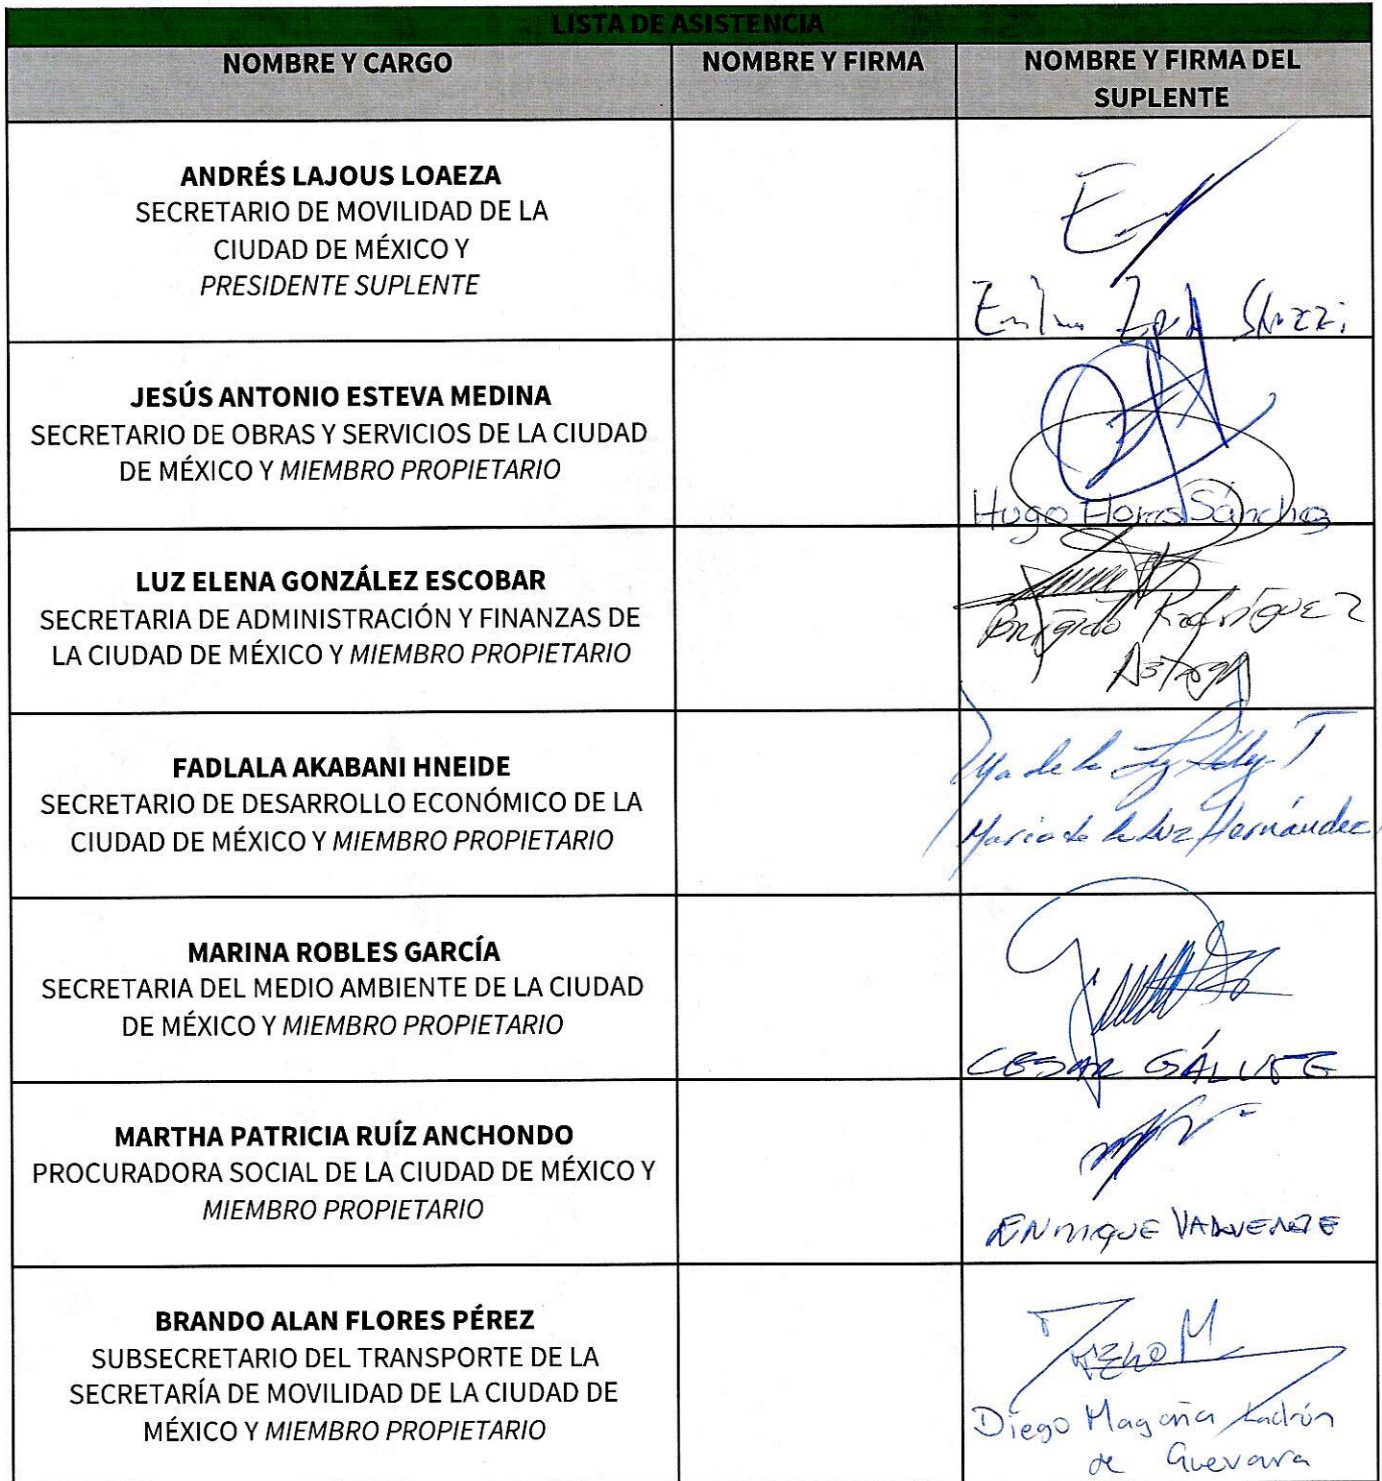 LISTA DE ASISTENCIA
NOMBRE Y CARGO
NOMBRE Y FIRMA
NOMBRE Y FIRMA DEL
SUPLENTE
ANDRÉS LAJOUS LOAEZA
SECRETARIO DE MOVILIDAD DE LA
CIUDAD DE MÉXICO Y
PRESIDENTE SUPLENTE
JESÚS ANTONIO ESTEVA MEDINA
SECRETARIO DE OBRAS Y SERVICIOS DE LA CIUDAD
DE MÉXICO Y MIEMBRO PROPIETARIO
Hugo Flores Sánchez
LUZ ELENA GONZÁLEZ ESCOBAR
SECRETARIA DE ADMINISTRACIÓN Y FINANZAS DE
LA CIUDAD DE MÉXICO Y MIEMBRO PROPIETARIO
Rodríguez
FADLALA AKABANI HNEIDE
SECRETARIO DE DESARROLLO ECONÓMICO DE LA
CIUDAD DE MÉXICO Y MIEMBRO PROPIETARIO
Ma de la Luz
Maria de la Luz Hernández
MARINA ROBLES GARCÍA
SECRETARIA DEL MEDIO AMBIENTE DE LA CIUDAD
DE MÉXICO Y MIEMBRO PROPIETARIO
CESAR
MARTHA PATRICIA RUÍZ ANCHONDO
PROCURADORA SOCIAL DE LA CIUDAD DE MÉXICO Y
MIEMBRO PROPIETARIO
ENRIQUE
BRANDO ALAN FLORES PÉREZ
SUBSECRETARIO DEL TRANSPORTE DE LA
SECRETARÍA DE MOVILIDAD DE LA CIUDAD DE
MÉXICO Y MIEMBRO PROPIETARIO
Diego M
Diego Magaña Ladrón
de Guevara